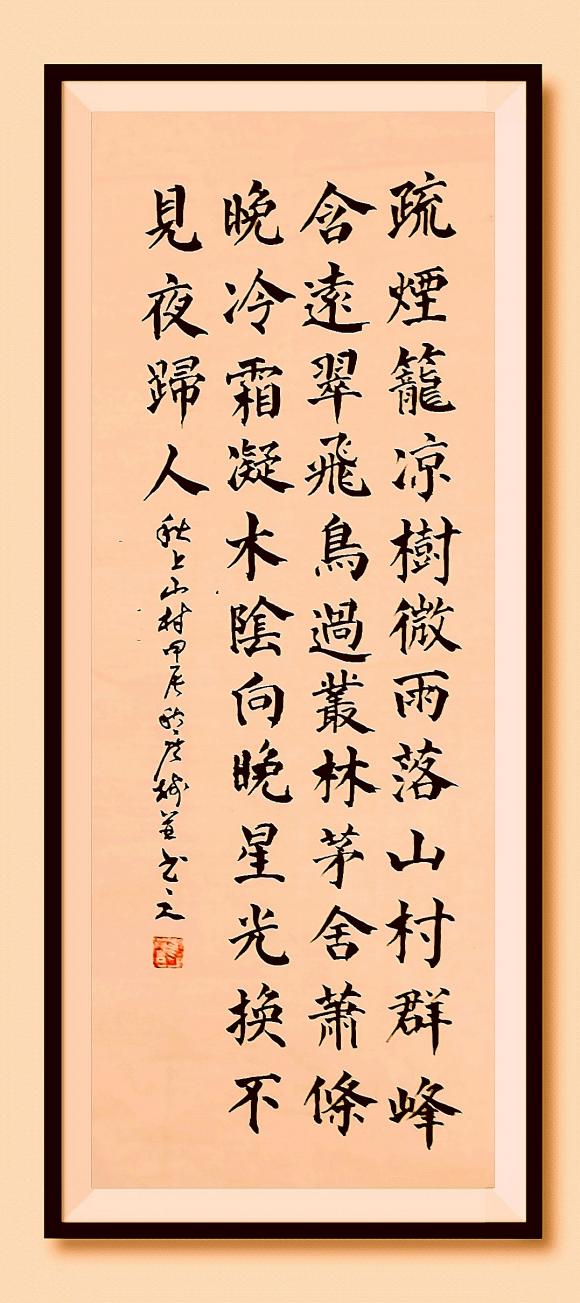 疏煙籠凉樹微雨落山村群峰
含遠翠飛鳥過叢林茅舍蕭條
晚冷霜凝木陰向晚星光換不
見夜歸人
秋上山村甲辰秋